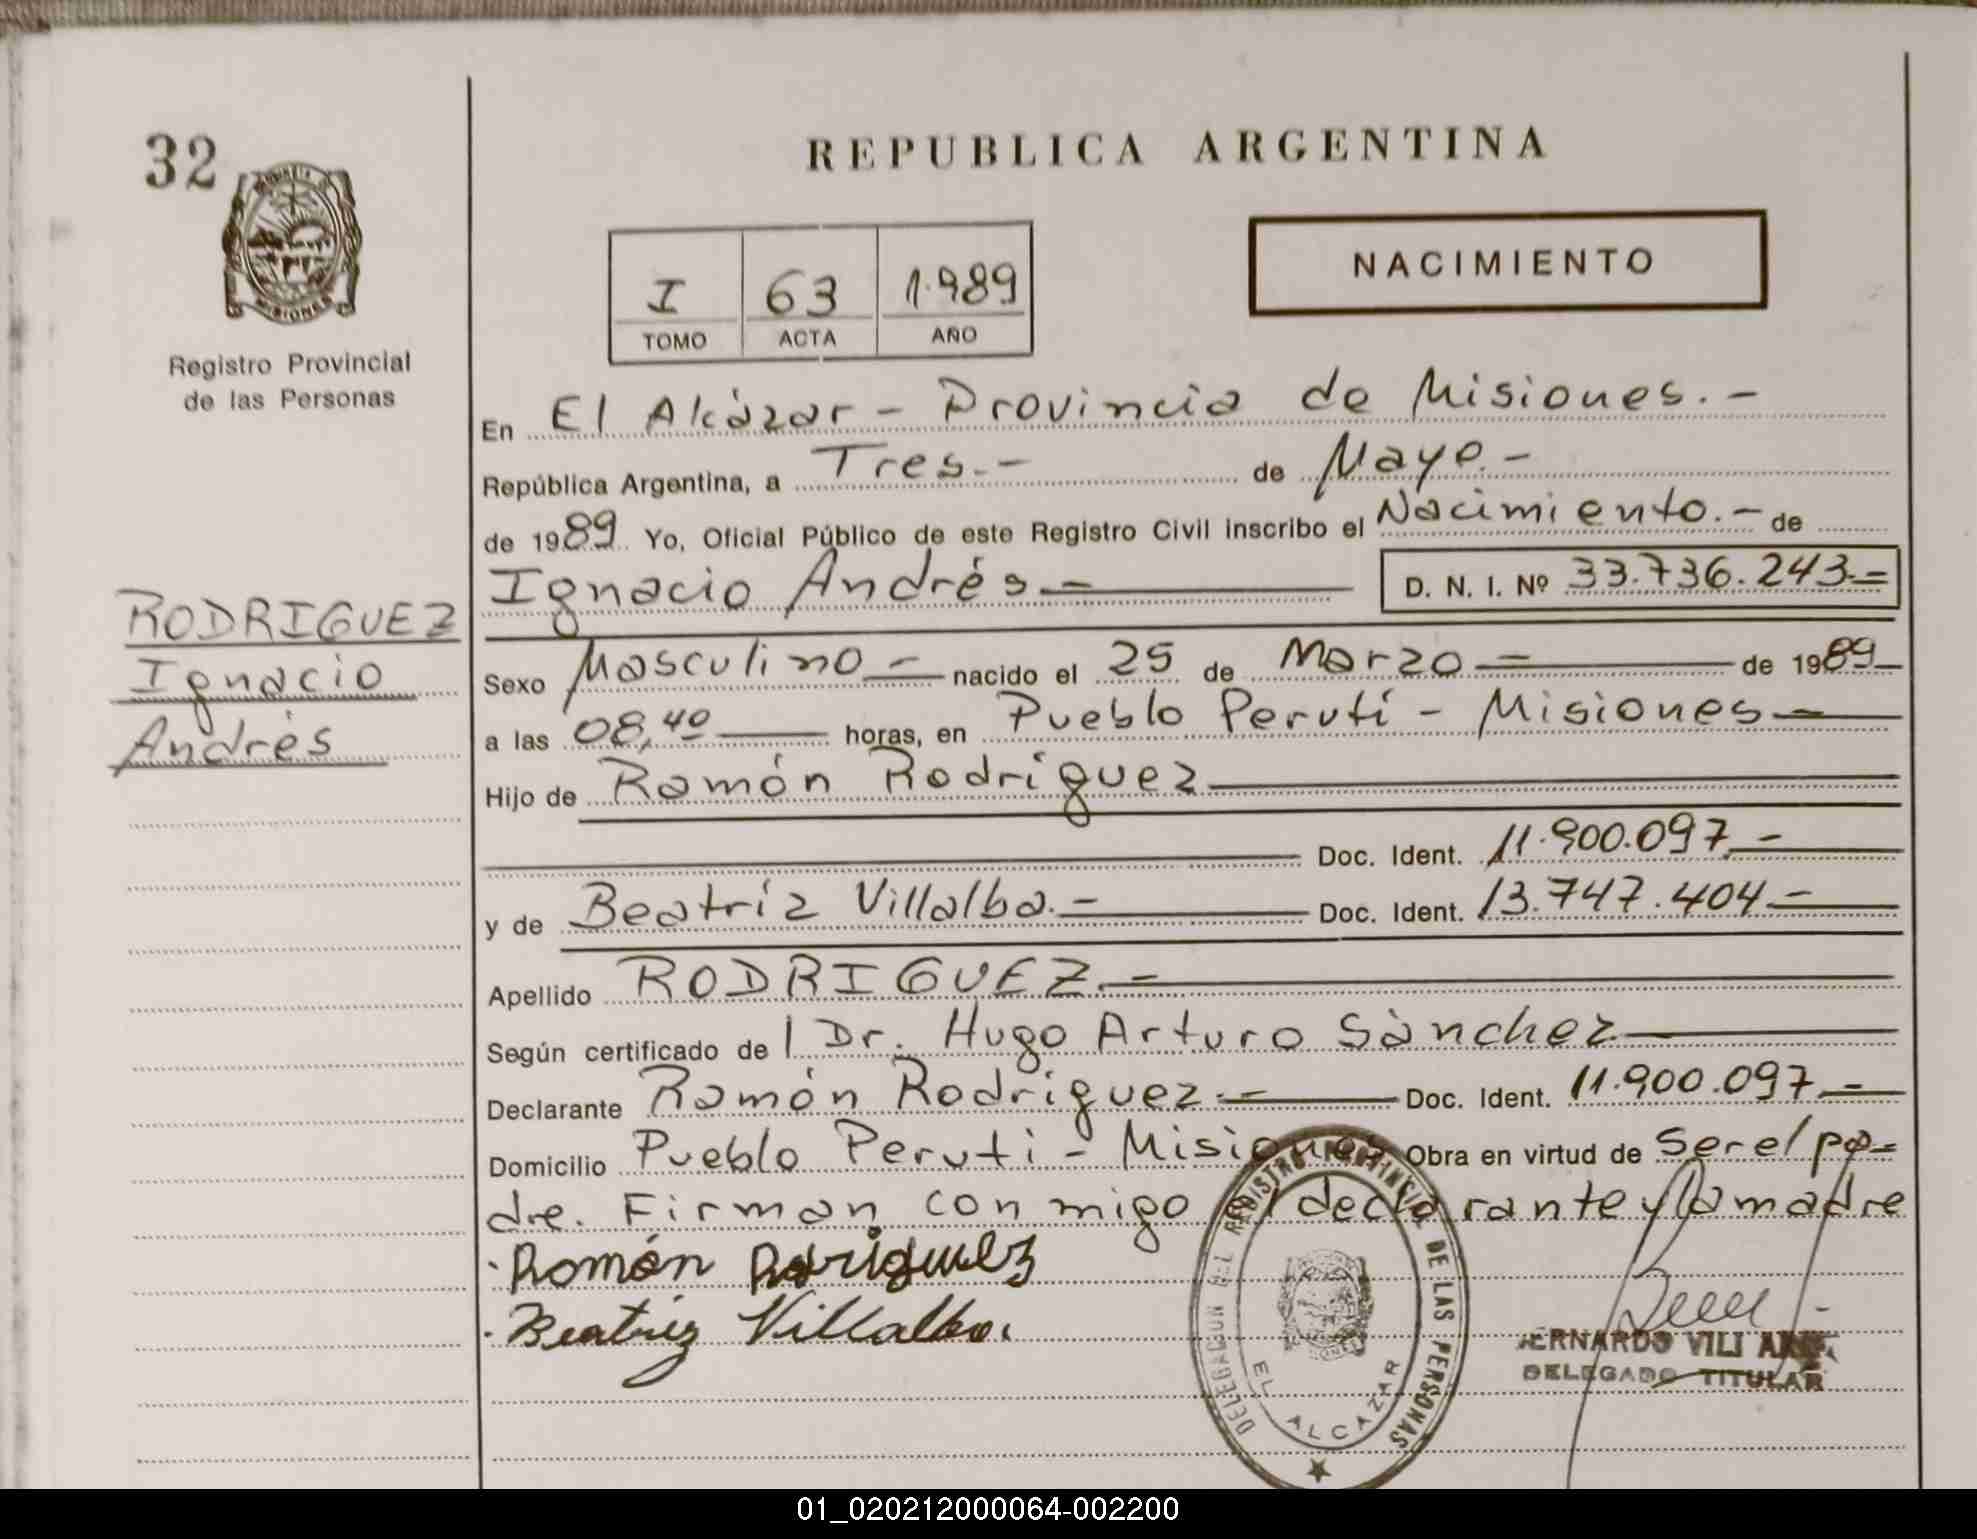 32
REPUBLICA ARGENTINA
NACIMIENTO
I 63 1.989
TOMO ACTA AÑO
Registro Provincial
de las Personas
En El Alcázar - Provincia de Misiones.-
República Argentina, a Tres.- de Mayo.-
de 1989 Yo, Oficial Público de este Registro Civil inscribo el Nacimiento.- de
Ignacio Andrés.- D. N. I. Nº 33.736.243.-
RODRIGUEZ
Ignacio
Andrés
Sexo Masculino - nacido el 25 de Marzo - de 1989
a las 08,40 horas, en Pueblo Perutí - Misiones -
Hijo de Ramón Rodríguez
Doc. Ident. 11.900.097.-
y de Beatríz Villalba.- Doc. Ident. 13.747.404.-
Apellido RODRIGUEZ.-
Según certificado de l Dr. Hugo Arturo Sánchez
Declarante Ramón Rodríguez.- Doc. Ident. 11.900.097.-
Domicilio Pueblo Peruti - Misiones Obra en virtud de Ser el pa-
dre. Firman con migo el declarante y la madre
Ramón Rodriguez
Beatriz Villalba.
DELEGACION DEL REGISTRO PROVINCIAL DE LAS PERSONAS
EL ALCAZAR
DELEGADO TITULAR
01_020212000064-002200